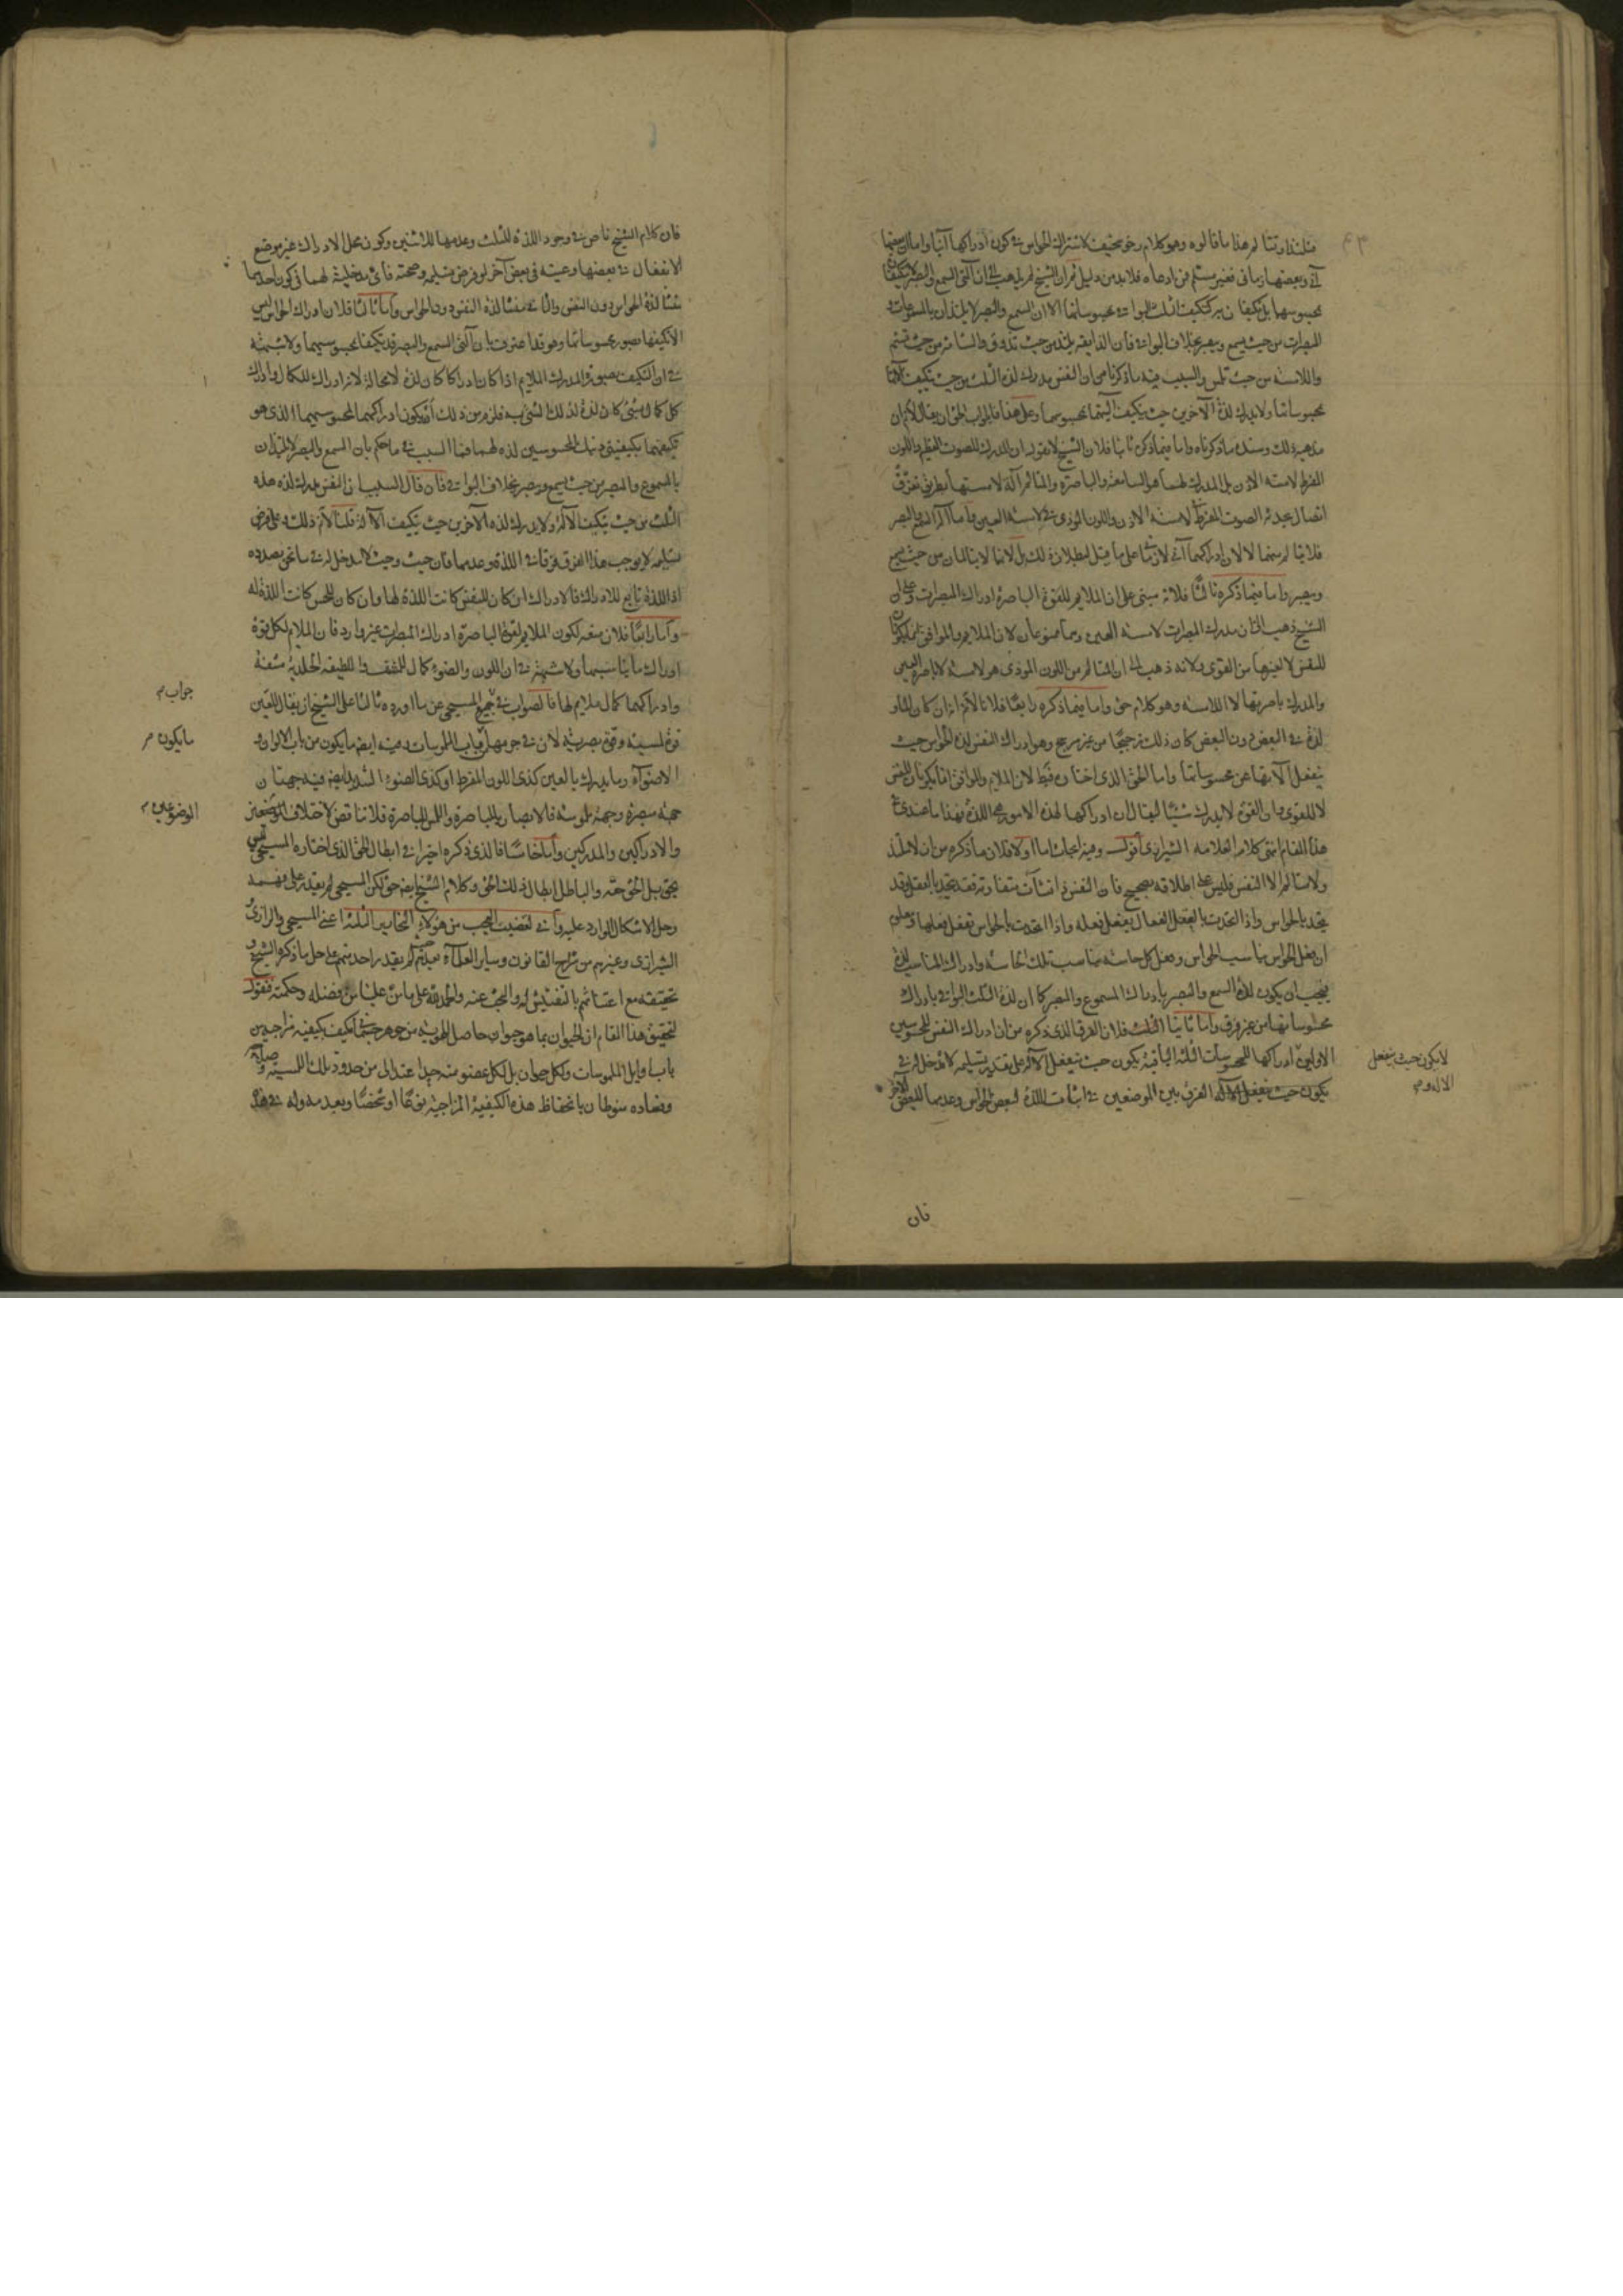 فتلتذ او تتألم هذا ما قالوه وهو كلام رخو سخيف لاشتراك الحواس في كون ادراكها آنيا واما ان بعضها
آني وبعضها زماني فغير مسلم فمن ادعاه فلابد من دليل ثم ان الشيخ لم يذهب الى ان آلتي السمع والبصر لا يتكيفان
بمحسوسهما بل يتكيفان به كتكيف الثلث البواقي بمحسوساتها الا ان السمع والبصر لا يلتذان بالمسموعات و
المبصرات من حيث يسمع ويبصر بخلاف البواقي فان الذايقة يلتذ من حيث تذوق والشامة من حيث تشم
واللامسة من حيث تلمس والسبب فيه ما ذكرنا من ان النفس يدرك لذة الثلث من حيث يتكيف آلاتها
بمحسوساتها ولا يدرك لذة الآخرين حيث يتكيف آلتيهما بمحسوسهما وعلى هذا فالجواب الحق ان يقال لا نم ان
مذهبه ذلك وسنده ما ذكرناه واما فيما ذكره ثانيا فلان الشيخ لا يقول ان المدرك للصوت العظيم واللون
المفرط لامسة الاذن بل المدرك لهما هو السامعة والباصرة والمتألم آلة لامستها بطريق تفرق
اتصال يحدثه الصوت المفرط في لامسة الاذن واللون الموذي في لامسة العين واما آلتا السمع والبصر
فلا يتألم منهما لا لان ادراكهما آني لا زماني على ما قيل لبطلان ذلك بل لانهما لا يتألمان من حيث يسمع
ويبصر واما فيما ذكره ثالثا فلانه مبني على ان الملايم للقوة الباصرة ادراك المبصرات وعلى ان
الشيخ ذهب الى ان مدرك المبصرات لامسة العين وهما ممنوعان لان الملايم والموافق انما يكونان
للنفس لا لغيرها من القوى ولانه ذهب الى ان المتألم من اللون الموذي هو لامسة لا باصرة العين
والمدرك باصرتها لا اللامسة وهو كلام حق واما فيما ذكره رابعا فلانا لا نم انه ان كان لها و
لذة في البعض دون البعض كان ذلك ترجيحا من غير مرجح وهو ادراك النفس لذة الحواس حيث
ينفعل آلاتها عن محسوساتها واما الحق الذي اختاره فغلط لان الملايم والموافق انما يكونان للنفس
لا للقوى وان القوى لا يدرك شيئا ليقال ان ادراكها لهذه الامور هي اللذة فهذا ما عندي في
هذا المقام انتهى كلام العلامة الشيرازي اقول وفيه ابحاث اما اولا فلان ما ذكره من ان لا ملتذ
ولا متألم الا النفس فليس على اطلاقه بصحيح فان النفس ذا نشآت متفاوتة فقد يتحد بالعقل وقد
يتحد بالحواس واذا اتحدت بالعقل الفعال يفعل فعله واذا اتحدت بالحواس تفعل فعلها ومعلوم
ان فعل الحواس يناسب الحواس وفعل كل حاسة يناسب تلك الحاسة وادراك المناسب لذة
فيجب ان يكون للذة السمع والبصر بادراك المسموع والمبصر كما ان لذة الثلث البواقي بادراك
محسوساتها من غير فرق واما ثانيا فلان الفرق الذي ذكره من ان ادراك النفس للمحسوسين
الاولين ادراكها للمحسوسات الثلثة الباقية يكون حيث ينفعل الآلة على تقدير تسليمه لا مدخل له في
يكون حيث ينفعل الآلة الفرق بين الموضعين في اثبات اللذة لبعض الحواس وعدمها للبعض الآخر
لا يكون حيث ينفعل
الآلة و م
فان
فان كلام الشيخ ناص في وجود اللذة للثلث وعدمها للاثنين وكون محل الادراك غير موضع
الانفعال في بعضها وعينه في بعض آخر لو فرض تسليمه وصحته فاي مدخلية لهما في كون احديهما
منشأ لذة الحواس دون النفس والثاني منشأ لذة النفس دون الحواس واما ثالثا فلان ادراك الحواس ليس
الا تكيفها بصور محسوساتها وهو قد اعترف بان آلتي السمع والبصر قد يتكيفا بمحسوسيهما ولا شبهة
في ان التكيف بصورة المدرك الملايم اذا كان ادراكا كان لذة لا محالة لانه ادراك للكمال وادراك
كل كمال لشيء كان لذة لذلك الشيء به فلزم من ذلك ان يكون ادراكهما لمحسوسيهما الذي هو
تكيفهما بكيفيتي ذينك المحسوسين لذة لهما فما السبب في ما حكم بان السمع والبصر لا يلتذان
بالمسموع والمبصر من حيث يسمع ويبصر بخلاف البواقي فان قال السبب ان النفس يدرك لذة هذه
الثلث من حيث يتكيف الآلة ولا يدرك لذة الآخرين حيث يتكيف الآلة قلنا لا نم ذلك وعلى فرض
تسليمه لا يوجب هذا الفرق فرقا في اللذة وعدمها فان حيث وحيث لا مدخل له في ما نحن بصدده
اذ اللذة تابع للادراك فالادراك ان كان للنفس كانت اللذة لها وان كان للحس كانت اللذة له
واما رابعا فلان منعه لكون الملايم لقوة الباصرة ادراك المبصرات غير وارد فان الملايم لكل قوة
ادراك ما يناسبها ولا شبهة في ان اللون والضوء كمال للمشف والطبقة الجليدية مشفة
وادراكهما كمال ملايم لها فالصواب في جميع المسيحي عن ما اورده ثالثا على الشيخ ان يقال للعين
قوة لمسية وقوة بصرية لان في جرمها من باب الملموسات وفيه ايضا ما يكون من باب الالوان و
الاضواء وما يدرك بالعين كذي اللون المفرط او كذي الضوء الشديد ايضا فيه جهتان
جهة مبصرة وجهة ملموسة فالابصار بالباصرة واللمس للباصرة فلا تناقض لاختلاف الموضعين
والادراكين والمدركين واما خامسا فالذي ذكره اخيرا في ابطال الحق الذي اختاره المسيحي ليس
بحق بل الحق حقه والباطل ابطال ذلك الحق وكلام الشيخ ايضا حق لكن المسيحي لم يقدر على فهمه
وحل الاشكال الوارد عليه واني لقضيت العجب من هؤلاء النحارير الثلثة اعني المسيحي والرازي و
الشيرازي وغيرهم من شراح القانون وساير العلماء بعدهم لم يقدر احد منهم على حل ما ذكره الشيخ و
تحقيقه مع اعتنائهم بالتفتيش له والبحث عنه والحمد لله على ما من علينا من فضله وحكمته فنقول
لتحقيق هذا المقام ان الحيوان بما هو حيوان حاصل الهوية من جوهر جسماني مكيف بكيفية مزاجية من
باب اوايل الملموسات ولكل حيوان بل لكل عضو منه حد اعتدالي من حدود تلك اللمسية و صلاحه
وفساده منوطان بانحفاظ هذه الكيفية المزاجية نوعا او شخصا وبعد مدوله في هذا
جواب م
ما يكون م
الموضوعين م